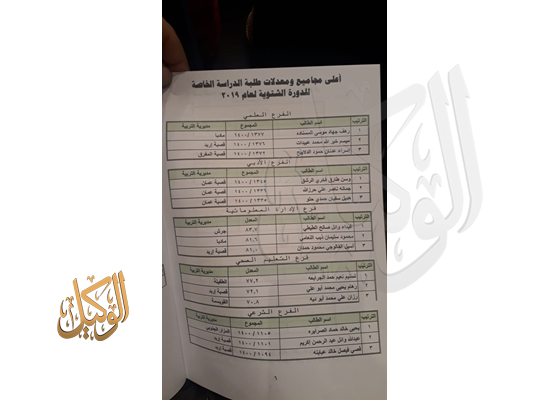 أعلى مجاميع ومعدلات طلبة الدراسة الخاصة
للدورة الشتوية لعام ٢٠١٩
الفرع العلمي
الترتيب اسم الطالب المجموع مديرية التربية
١ رهف جهاد موسى ١٣٧٧/١٤٠٠ مادبا
٢ محمد عبيدات ١٣٧٦/١٤٠٠ قصبة اربد
٣ اسراء عدنان حمود ١٣٧٢/١٤٠٠ المفرق
الفرع الأدبي
الترتيب اسم الطالب المجموع مديرية التربية
١ وسن طارق فخري الرشق ١٣٤٥/١٤٠٠ قصبة عمان
٢ جمانه ناصر علي حرزالله ١٣٣٩/١٤٠٠ قصبة عمان
٣ هديل سفيان حمدي ١٤٠٠ قصبة عمان
فرع الإدارة المعلوماتية
الترتيب اسم الطالب المعدل مديرية التربية
١ وائل صالح ٨٣,٧ جرش
٢ محمود سليمان ذيب النعامي ٨٢,٦ مادبا
٣ محمود حمدان ٨٢,٠ قصبة اربد
فرع التعليم الصحي
الترتيب اسم الطالب المعدل مديرية التربية
١ تسنيم نعيم حمد الجرابعه ٧٧,٢ الطفيلة
٢ رهام يحيى محمد أبو علي ٧٢,٦ قصبة اربد
٣ رزان علي محمد أبو ديه ٧٠,٨ القويسمة
الفرع الشرعي
الترتيب اسم الطالب المجموع مديرية التربية
١ يحيى خالد حماد الصرايره ١١٠٥/١٤٠٠ المزار الجنوبي
٢ عبدالله وائل عبد الرحمن ١١٠١/١٤٠٠ قصبة اربد
٣ قصي فيصل خالد عبابنه ١٠٩٤/١٤٠٠ قصبة اربد
٦
الوكيل
الوكيل